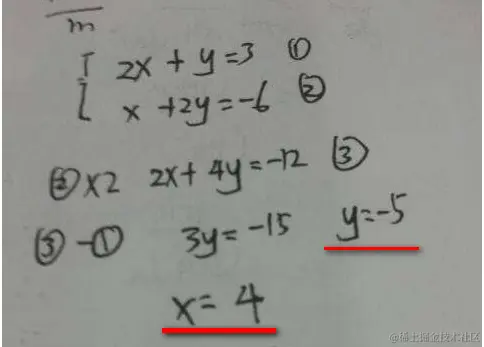 m
2x + y = 3 ①
x + 2y = -6 ②
②×2 2x + 4y = -12 ③
③-① 3y = -15 y = -5
x = 4
@稀土掘金技术社区